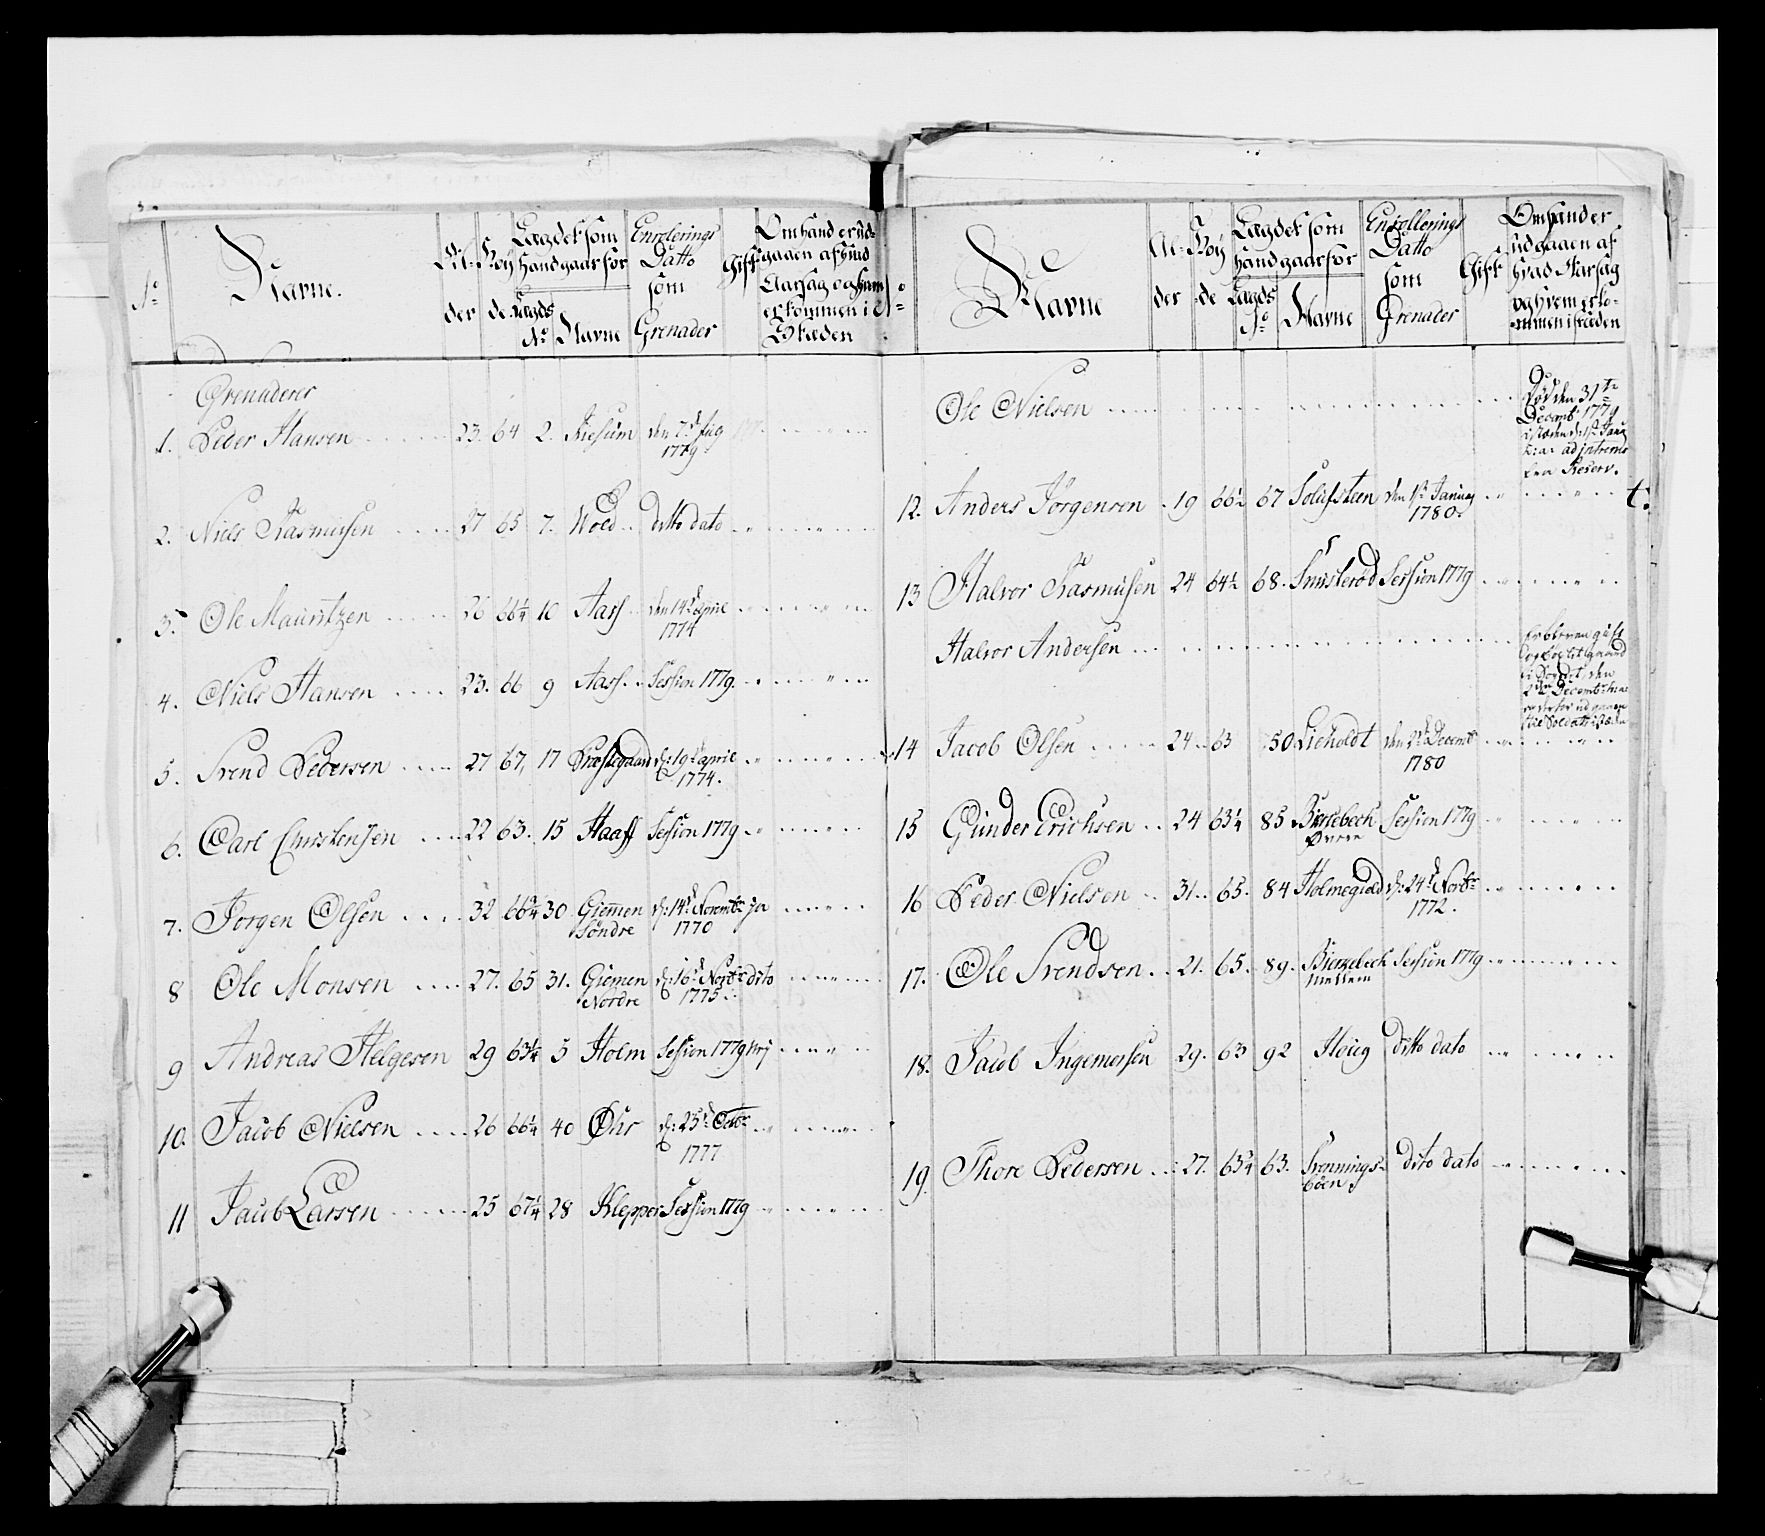 No
Navne.
Al-
der
Høy
de.
Lagdet som
Hand gaar for
Lagds
No Navne
Enrolerings
Datto
som
Grenader
Gift
Om hand er ud-
gaaen af hvad
Aarsag og hvem
er kommen i
Stæden
Grenaderer
1. Peder Hansen 23. 64 2. Riesum den 7de Aug
1779
2. Niels Rasmusen 27 65 7. Woed ditto dato
3. Ole Mauritzen 26 66 1/4 10 Aass den 14de Aprile
1774
4. Niels Hansen 23. 66 9 Aass Session 1779.
5. Svend Pedersen 27 67, 17 Præstegaard d: 19de aprile
1774.
6. Carl Christensen 22 63. 15 Haaff Session 1779
7. Jørgen Olsen 32 66 3/4 30 Giemen d: 14de Novembr ja
Søndre 1770
8 Ole Monsen 27. 65 31. Giemen d: 16de Novbr dito
Nordre 1775
9 Andreas Helgesen 29 63 1/4 5 Holm Session 1779 nej
10. Jacob Nielsen 26 66 1/4 40 Øhr d: 23de Octbr
1777
11 Jacob Larsen 25 67 1/4 28 Klepper Session 1779
No
Navne
Al-
der
Høy
de
Lagdet som
hand gaar for
Lagds
No Navne
Enrollerings
Datto
som
Grenader
Gift
Om hand er
udgaaen af
hvad Aarsag
og hvem er ko-
mmen i stæden
Ole Nielsen
Død den 31te
Decemb: 1779
i stæden d: 1ste Janu
ad intrems
fra Reserv.
12. Anders Jørgensen 19 66 1/2 67 Solufsteen den 1ste Januay
1780.
t.
13 Halvor Rasmusen 24 64 1/2 68. Snusterød Session 1779
Halvor Andersen
Er bleven gift
og boesat gaard
i Lægdet, den
Decembr
er derfor udgaaen
til Soldat
14 Jacob Olsen 24 63 50 Lieholdt den 2de Decemb
1780
15 Gunder Erichsen 24 63 1/4 85 Bierkebech Session 1779
Øvere
16 Peder Nielsen 31. 65. 84 Holmegield d: 24de Novbr
1772.
17. Ole Svendsen 21. 65. 89. Bierkebech Session 1779
Mellem
18. Jacob Ingemorsen 29. 63 92 Høieg ditto dato
19. Thore Pedersen 27. 63 3/4 63. Svennings- dito dato
bøen